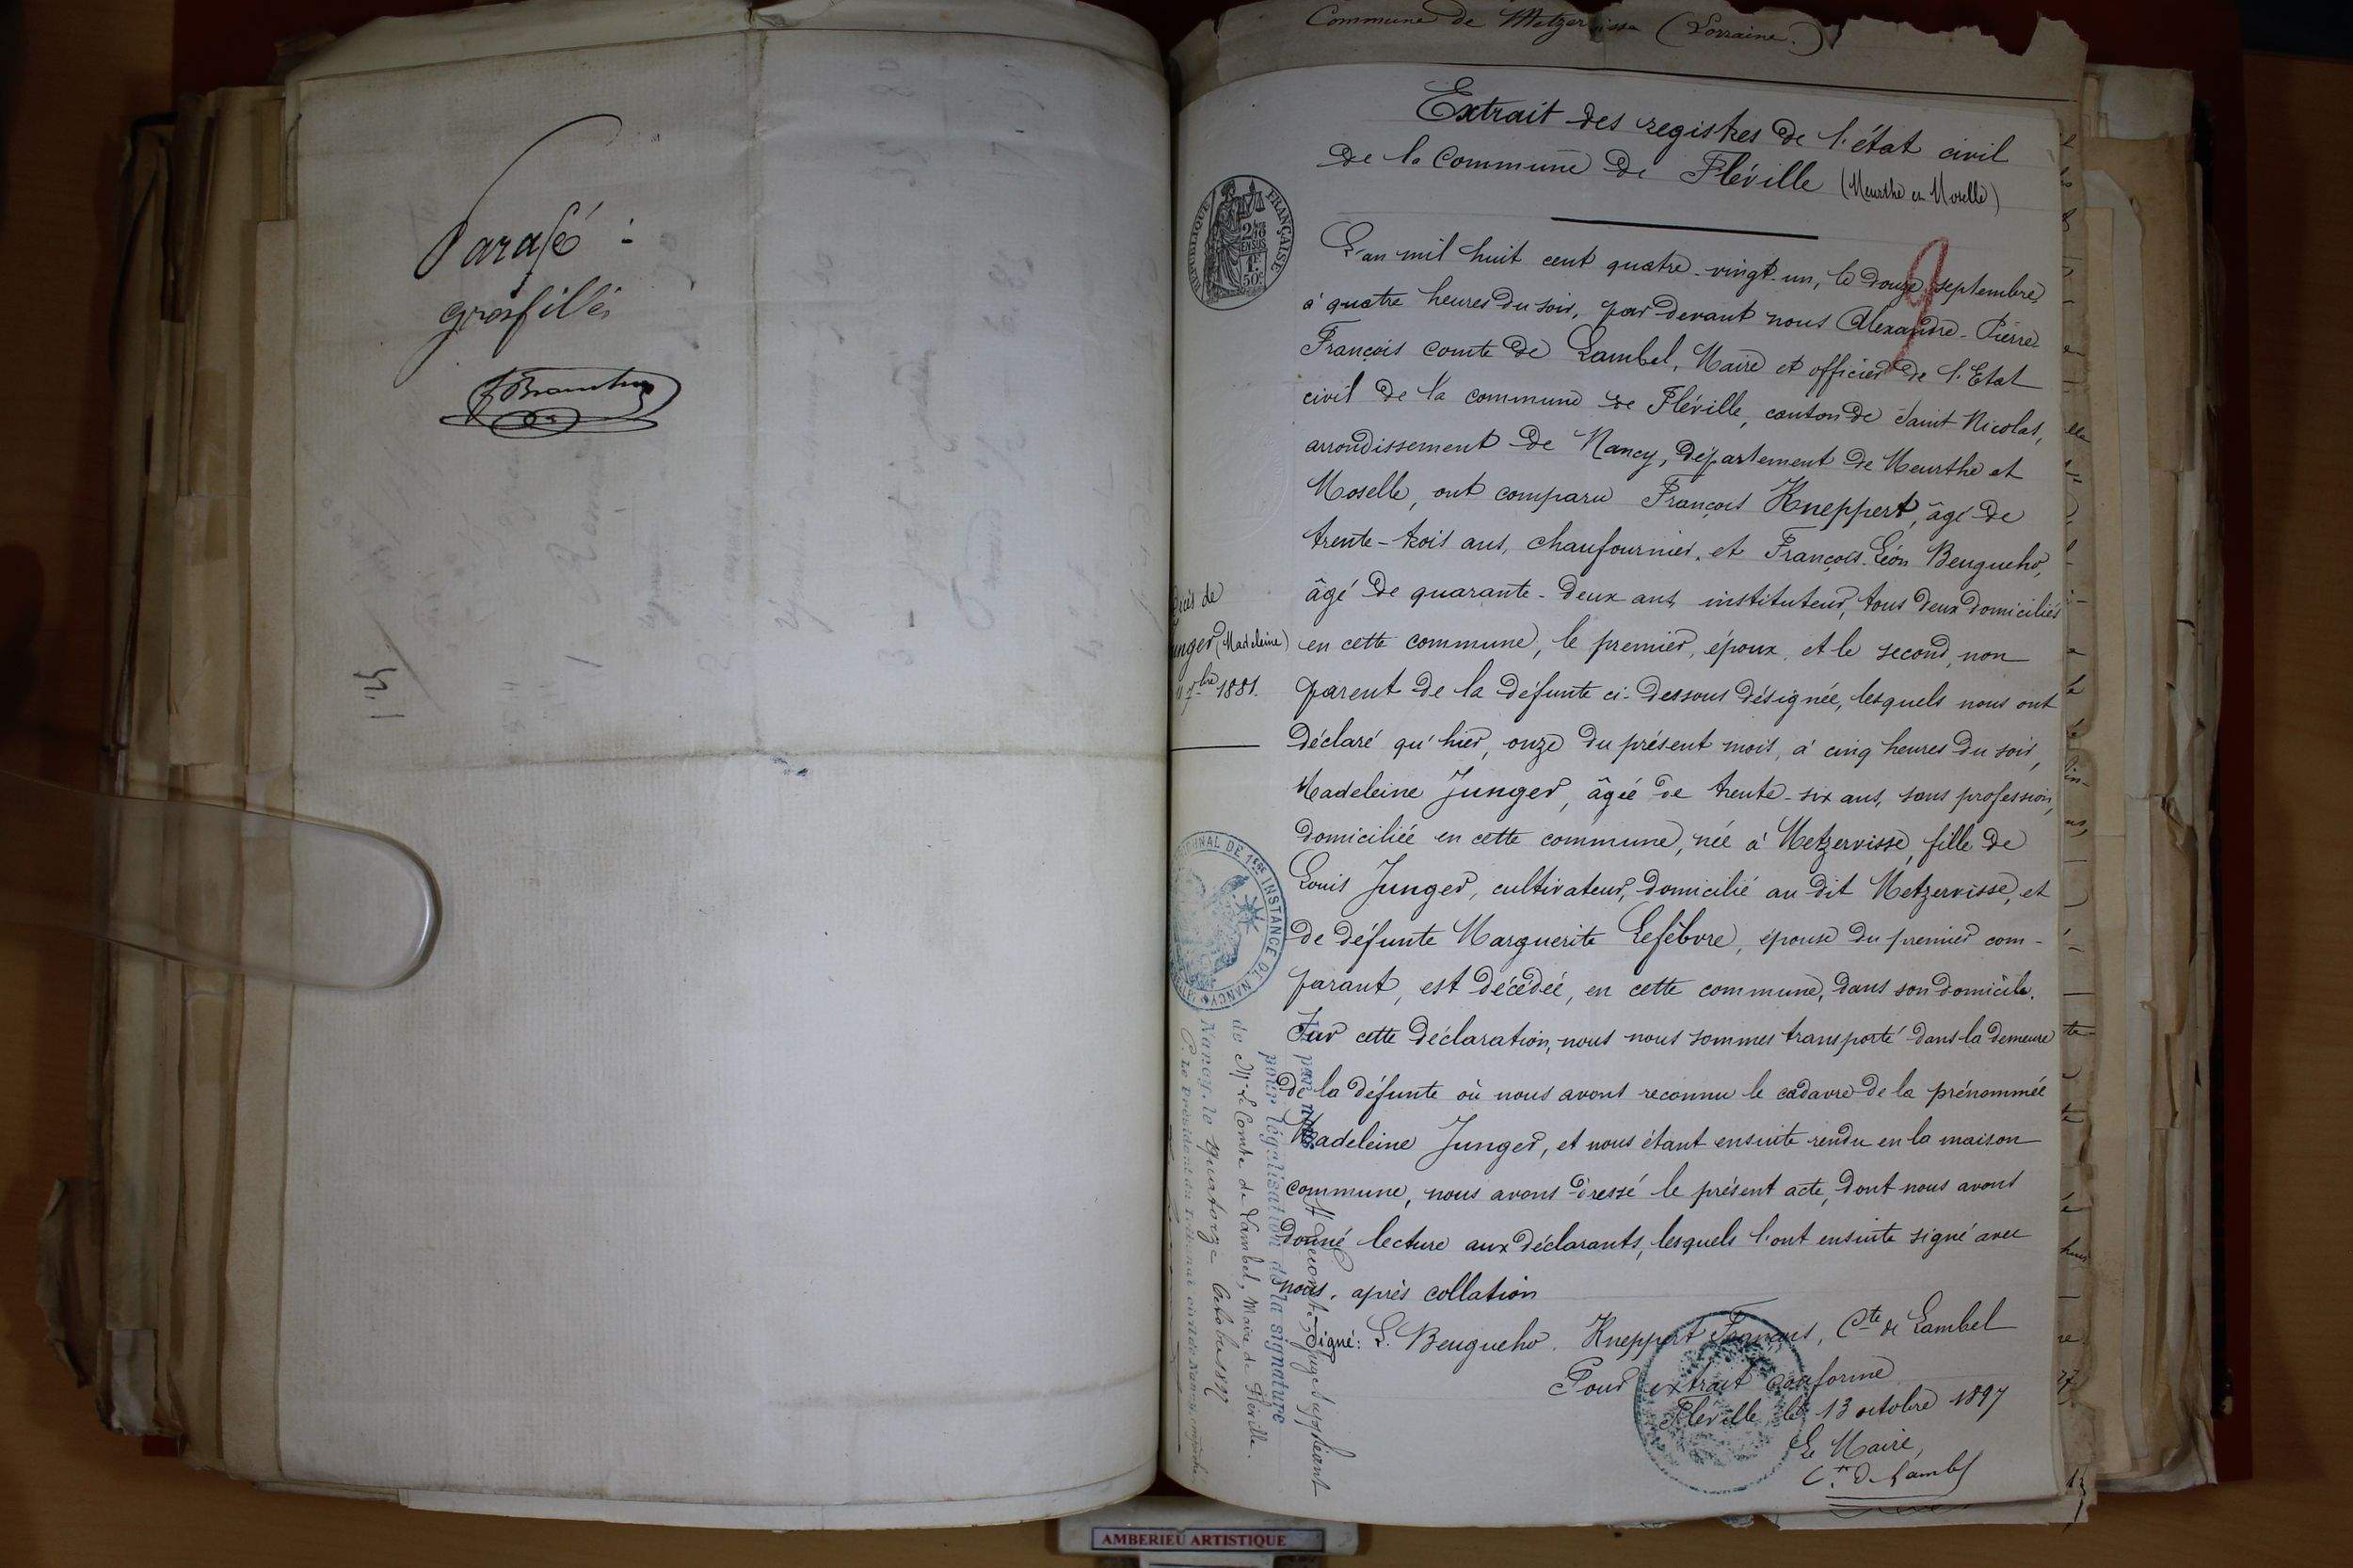 Parafé :
Commune de Metzervisse (Lorraine.)
Extrait des registres de l'état civil
de la Commune de Fléville (Meurthe et Moselle)
RÉPUBLIQUE FRANÇAISE
2/10
EN SUS
1F
50c
9
L'an mil huit cent quatre-vingt-un, le douze septembre
à quatre heures du soir, par devant nous Alexandre-Pierre
François comte de Lambel, Maire et officier de l'Etat
civil de la commune de Fléville, canton de Saint Nicolas,
arrondissement de Nancy, département de Meurthe et
Moselle, ont comparu François Kneppert, âgé de
trente-trois ans, chaufournier, et François Léon Beugueho,
âgé de quarante-deux ans, instituteur, tous deux domiciliés
en cette commune, le premier, époux, et le second, non
parent de la défunte ci-dessous désignée, lesquels nous ont
déclaré qu'hier, onze du présent mois, à cinq heures du soir,
Madeleine Junger, âgée de trente-six ans, sans profession,
domiciliée en cette commune, née à Metzervisse, fille de
Louis Junger, cultivateur, domicilié au dit Metzervisse, et
de défunte Marguerite Lefèbvre, épouse du premier com-
parant, est décédée, en cette commune, dans son domicile.
Sur cette déclaration, nous nous sommes transporté dans la demeure
de la défunte où nous avons reconnu le cadavre de la prénommée
Madeleine Junger, et nous étant ensuite rendu en la maison
commune, nous avons dressé le présent acte, dont nous avons
donné lecture aux déclarants, lesquels l'ont ensuite signé avec
nous, après collation
Signé: L. Beugueho. Kneppert François, Cte de Lambel
Pour extrait conforme
Fléville, le 13 octobre 1897
Le Maire,
Cte de Lambel
Décès de
Junger (Madeleine)
11 7bre 1881.
TRIBUNAL DE 1ERE INSTANCE DE NANCY
par nous
pour légalisation de la signature
de Mr Le Comte de Lambel, Maire de Fléville.
Nancy, le quatorze
P. le Président du Tribunal civil de Nancy
AMBERIEU ARTISTIQUE